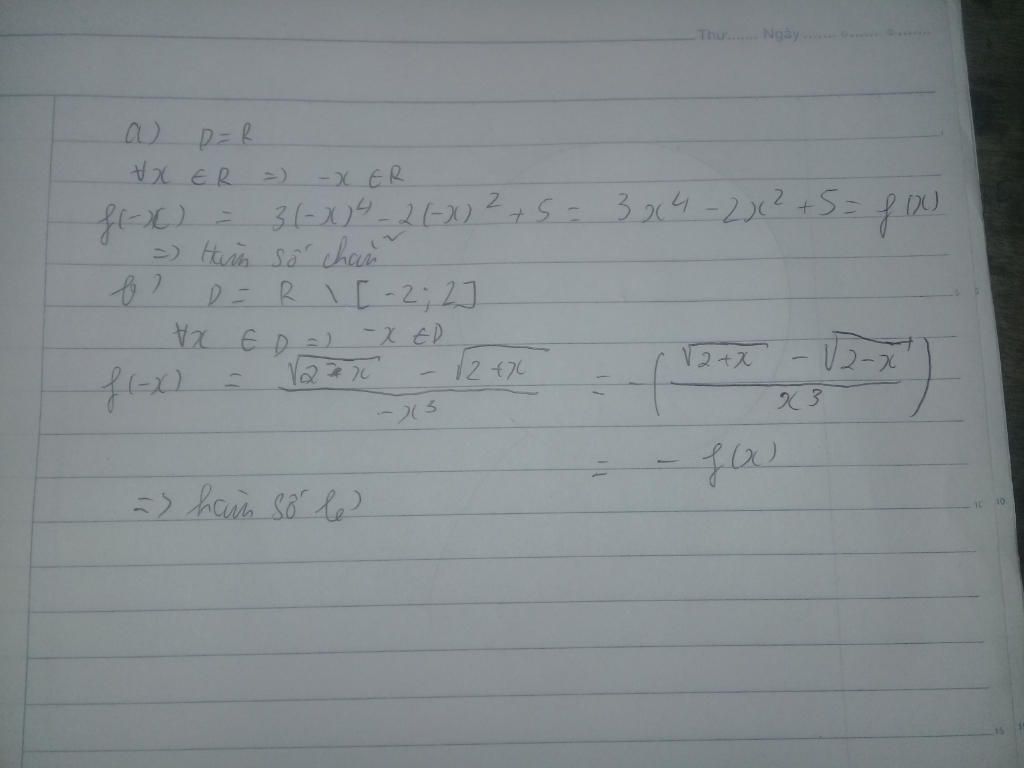 Thứ....... Ngày ....... 
a) D = R
∀x ∈ R => -x ∈ R
f(-x) = 3(-x)^4 - 2(-x)^2 + 5 = 3x^4 - 2x^2 + 5 = f(x)
=> Hàm số chẵn
b) D = R \ [-2; 2]
∀x ∈ D => -x ∈ D
f(-x) = (√(2-x) - √(2+x)) / (-x^3) = -((√(2+x) - √(2-x)) / x^3)
= - f(x)
=> hàm số lẻ
10
10
15